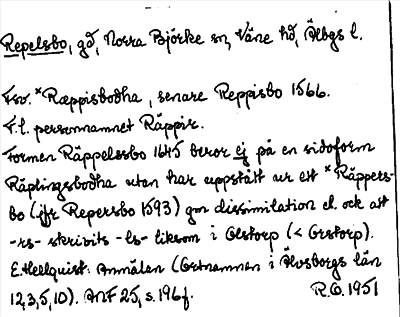 Repelsbo, gd, Norra Björke sn, Väne hd, Älbgs l.
Fsv. *Ræppisbodha, senare Reppisbo 1566.
F.l. personnamnet Räppir.
Formen Räppelssbo 1645 beror ej på en sidoform
Räplingsbodha utan har uppstått ur ett *Räppers-
bo (jfr Repersbo 1593) gm dissimilation el. ock att
-rs- skrivits -ls- liksom i Olstorp (< Orstorp).
E. Hellquist: Anmälan (Ortnamnen i Älvsborgs län
12,3,5,10). ANF 25, s. 196 f.
R.O. 1951